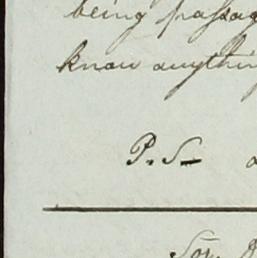 being passag
know anythin
P.S-